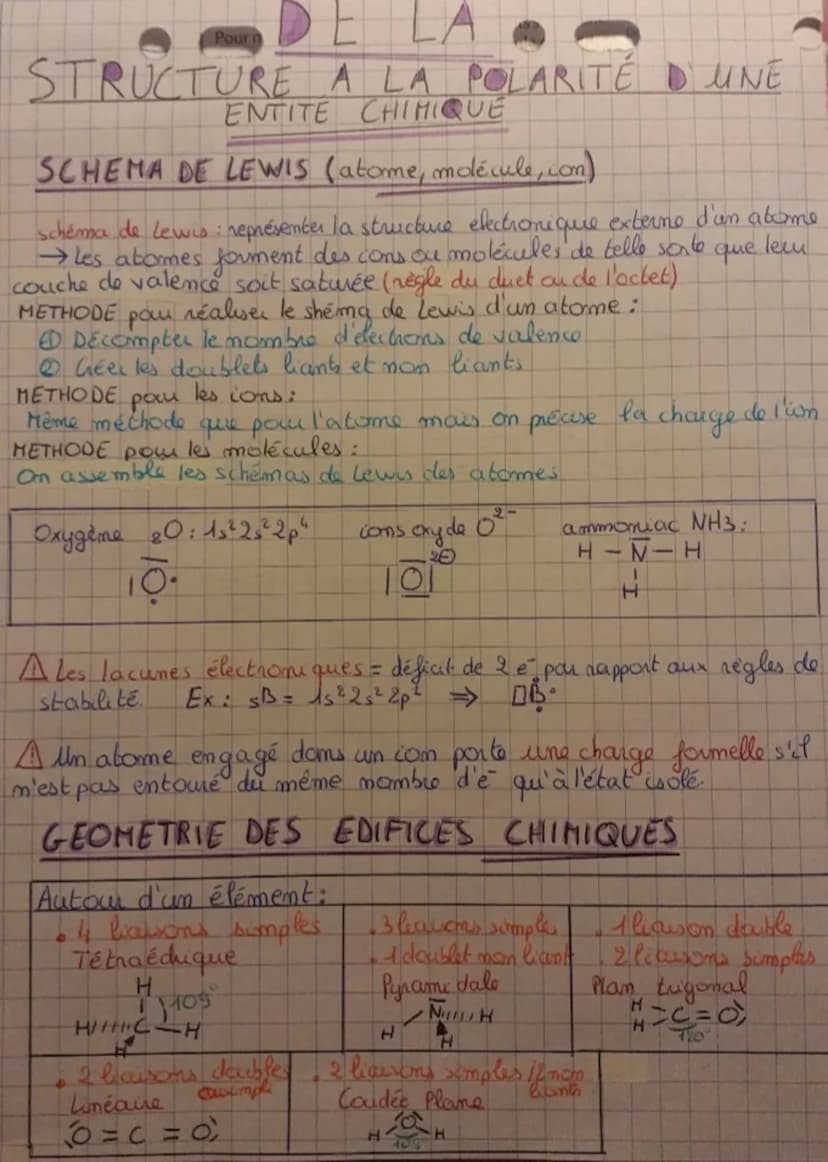 Pour
DE LA
STRUCTURE A LA POLARITÉ D'UNE
ENTITE CHIMIQUE
SCHEMA DE LEWIS (atome, molécule, ion)
schéma de Lewis : représenter la structure electronique externe d'un atome
→ Les atomes forment des ions ou molécules de telle sorte que leur
couche de valence soit saturée (règle du duet ou de l'octet)
METHODE pour réaliser le shéma de Lewis d'un atome :
① Décompter le nombre d'électrons de valence
② Créer les doublets liants et non liants
METHODE pour les ions :
Même méthode que pour l'atome mais on précise la charge de l'ion
METHODE pour les molécules :
On assemble les schémas de Lewis des atomes
Oxygène ₈O : 1s² 2s² 2p⁴ ions oxyde O²⁻ ammoniac NH3 :
H - N - H
O O 2⊖
H
⚠ Les lacunes électroniques = déficit de 2 e⁻ par rapport aux règles de
stabilité. Ex : ₅B = 1s² 2s² 2p¹ ⇒ □B
⚠ Un atome engagé dans un ion porte une charge formelle s'il
n'est pas entouré du même nombre d'e⁻ qu'à l'état isolé.
GEOMETRIE DES EDIFICES CHIMIQUES
Autour d'un élément :
• 4 liaisons simples
Tétraédrique
H
109°
H C H
H
• 3 liaisons simple
• 1 doublet non liant
Pyramidale
N H
H H
• 1 liaison double
• 2 liaisons simples
Plan trigonal
H
H C = O
120°
• 2 liaisons doubles
Linéaire
O = C = O
• 2 liaisons simples /2 non
liants
Coudée Plane
O
H H
105